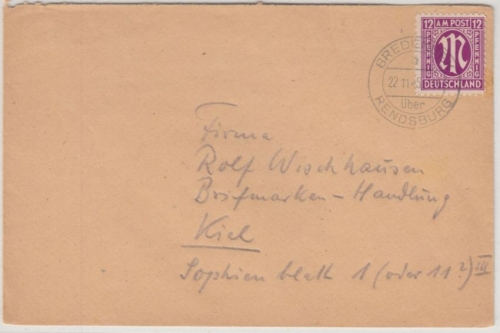 12 AM POST 12
PFENNIG
PFENNIG
DEUTSCHLAND
22.11.
über
RENDSBURG
Firma
Rolf Wischhausen
Briefmarken-Handlung
Kiel
Sophienblatt 1 (oder 11?) III